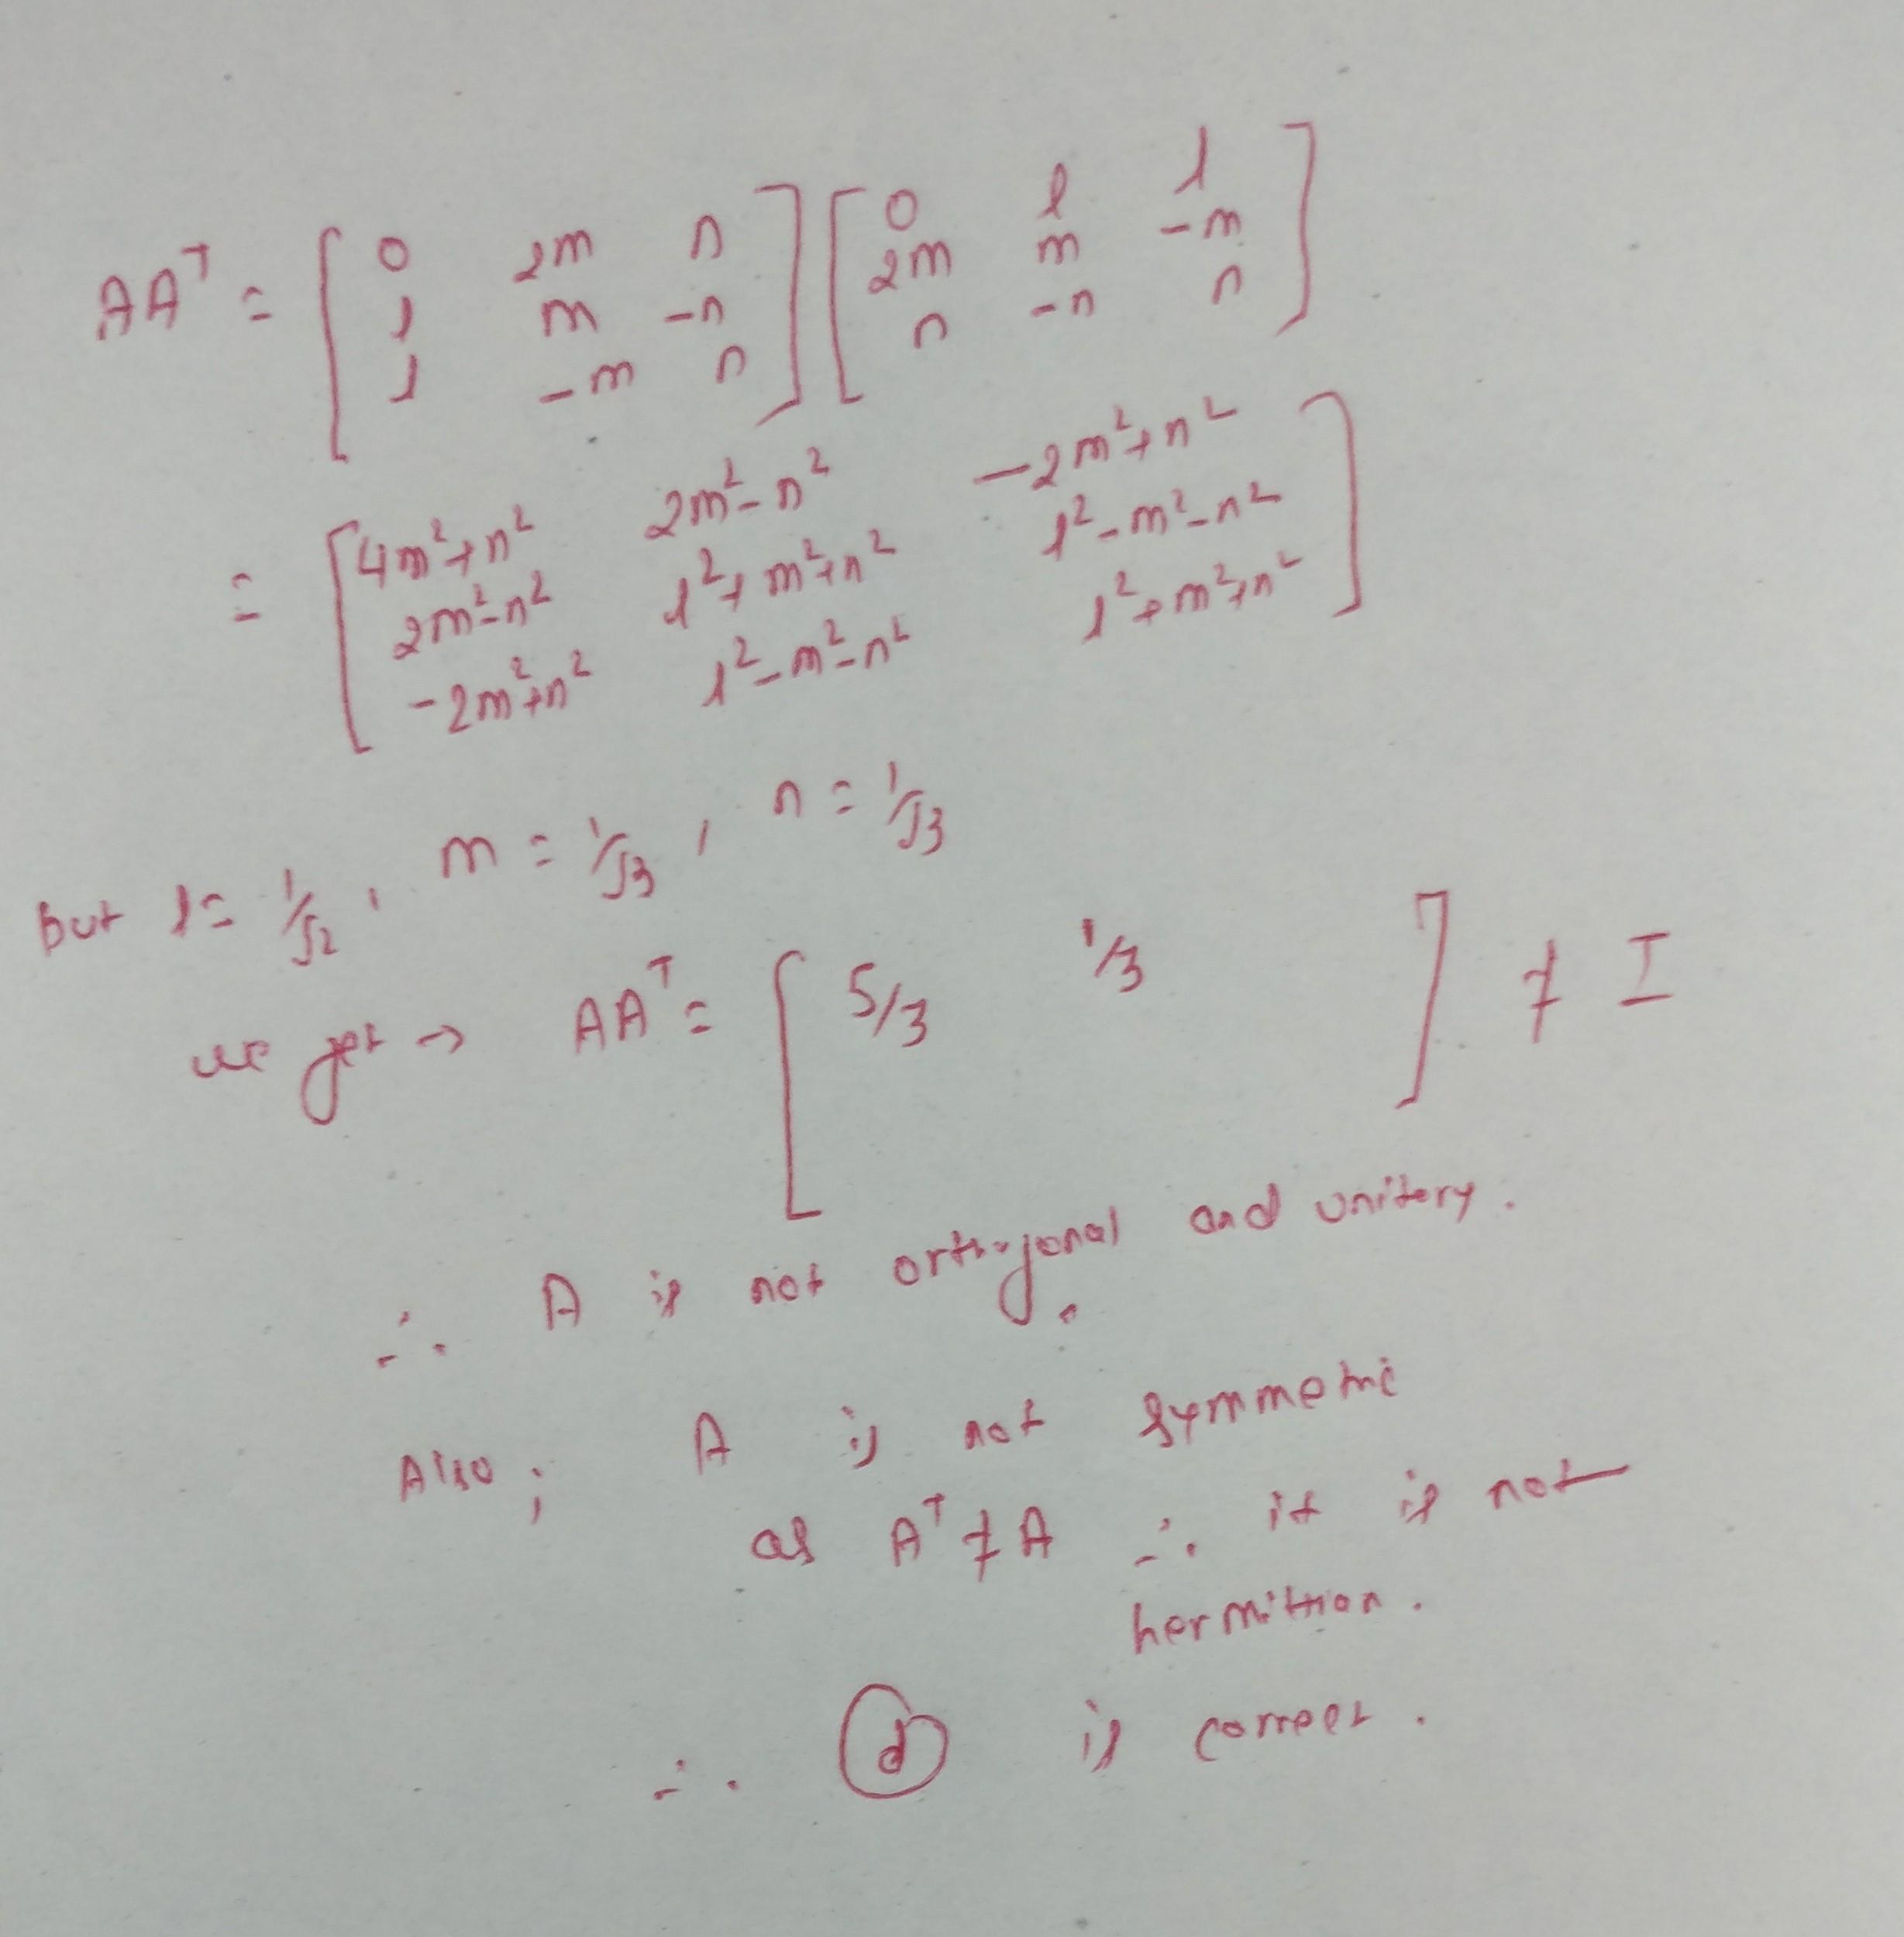 AAᵀ = [ 0 2m n ] [ 0 l l ]
[ l m -n ] [ 2m m -m ]
[ l -m n ] [ n -n n ]
= [ 4m²+n² 2m²-n² -2m²+n² ]
[ 2m²-n² l²+m²+n² l²-m²-n² ]
[ -2m²+n² l²-m²-n² l²+m²+n² ]
But l = 1/√2, m = 1/√3, n = 1/√3
we get → AAᵀ = [ 5/3 1/3 ] ≠ I
∴ A is not orthogonal and unitery.
Also; A is not symmetric
as Aᵀ ≠ A ∴ it is not
hermittion.
∴ (d) is correct.